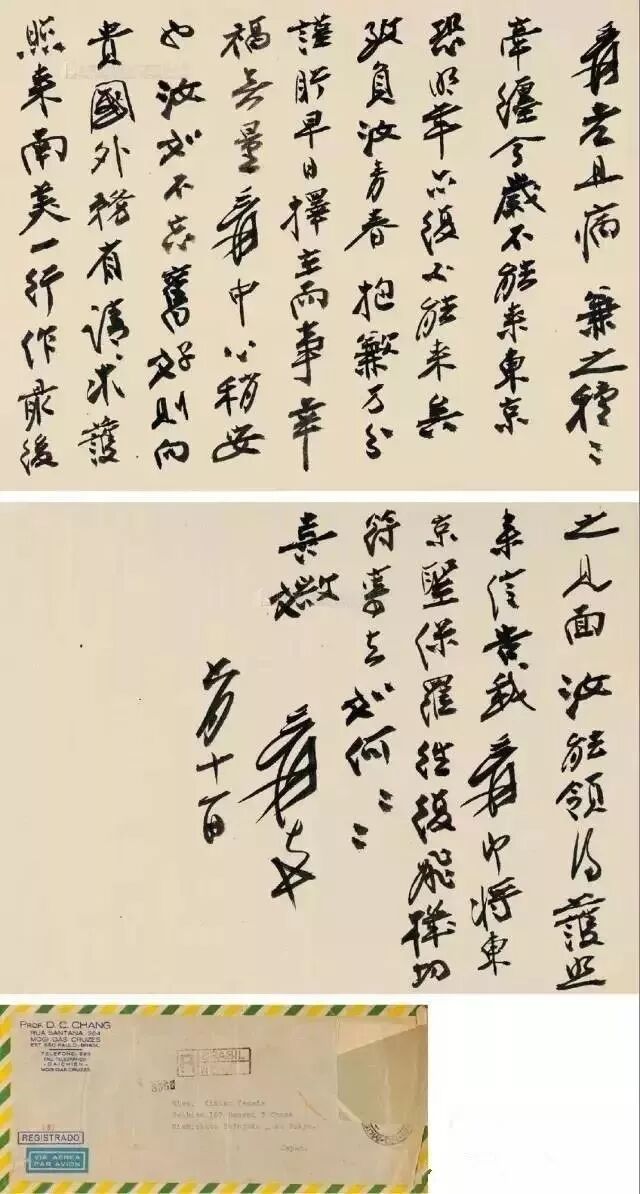 爰老且病兼之種〻
牽纏今歲不能來東京
恐明年亦復不能來矣
致負汝青春抱歉万分
謹盼早日擇主而事幸
福無量爰中心稍安
也汝如不忘舊好則向
貴國外務省請求護
照來南美一行作最後
之見面汝能領得護照
來信告我爰即將東
京聖保羅往復飛機切
符寄去如何〻〻
喜媺
爰
月十一日
PROF. D. C. CHANG
RUA SANTANA, 364
MOGI DAS CRUZES
EST. SÃO PAULO, BRASIL
TELEFONE:
END. TELEGRAFICO:
-DAICHIEN-
MOGI DAS CRUZES
R BRASIL
REGISTRADO
VIA AEREA
PAR AVION
Tokyo.
Japan.